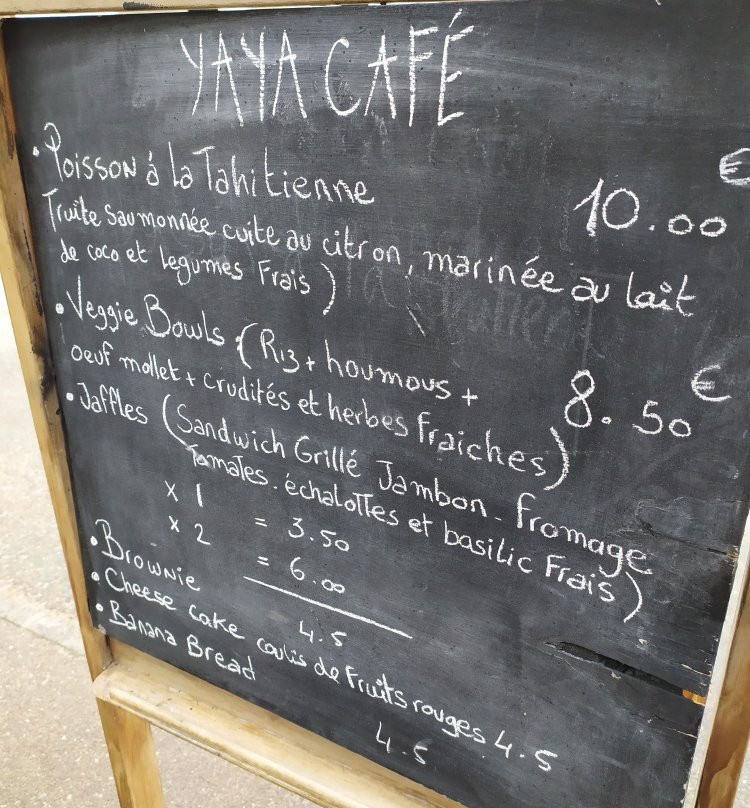 YAYA CAFÉ
• Poisson à la Tahitienne 10.00 €
Truite saumonnée cuite au citron, marinée au lait
de coco et legumes Frais )
• Veggie Bowls : ( Riz + houmous + 8.50 €
oeuf mollet + crudités et herbes Fraiches )
• Jaffles ( Sandwich Grillé Jambon - fromage
Tomates. échalottes et basilic Frais )
x 1 = 3.50
x 2 = 6.00
• Brownie 4.5
• Cheese cake coulis de Fruits rouges 4.5
• Banana Bread 4.5